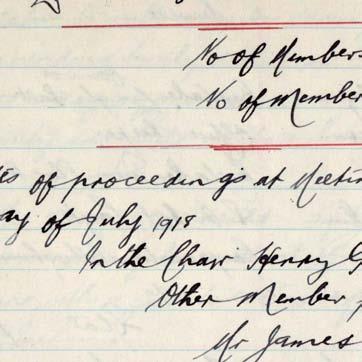 No of Members
No of Member
es of proceedings at Meetin
ay of July 1918
In the Chair Henry G
Other Member
Mr James